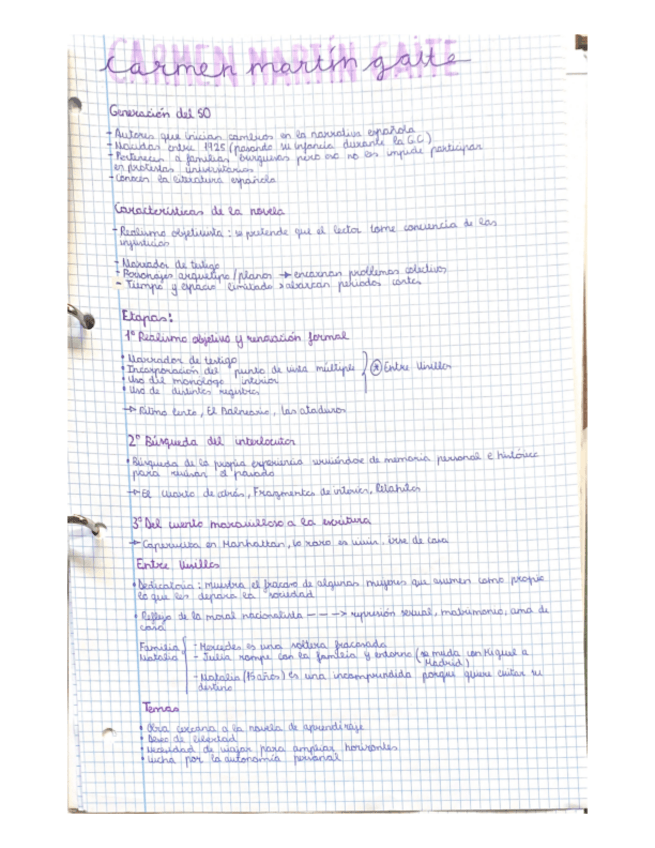 CARMEN MARTÍN GAITE
Carmen martín gaite
Generación del 50
- Autores que inician cambios en la narrativa española
- Nacidos entre 1925 (pasando su infancia durante la G.C)
- Pertenecen a familias burguesas pero eso no les impide participar
en protestas universitarias
- Conocen la literatura española
Características de la novela
- Realismo objetivista: se pretende que el lector tome conciencia de las
injusticias
- Narrador de testigo
- Personajes arquetipo/planos → encarnan problemas colectivos
- Tiempo y espacio limitado > abarcan periodos cortos
Etapas:
1º Realismo objetivo y renovación formal
• Narrador de testigo
• Incorporación del punto de vista múltiple } Entre Visillos
• Uso del monólogo interior
• Uso de distintos registros
→ Ritmo lento, El Balneario, Las ataduras
2º Búsqueda del interlocutor
• Búsqueda de la propia experiencia sirviéndose de memoria personal e histórica
para revisar el pasado
→ El cuarto de atrás, Fragmentos de interior, Retahílas
3º Del cuento maravilloso a la escritura
→ Caperucita en Manhattan, lo raro es vivir, irse de casa
Entre Visillos
• Dedicatoria: muestra el fracaso de algunas mujeres que asumen como propio
lo que les depara la sociedad
• Reflejo de la moral nacionalista - - - -> represión sexual, matrimonio, ama de
casa
Familia { - Mercedes es una soltera fracasada
Natalia - Julia rompe con la familia y entorno (se muda con Miguel a
Madrid)
- Natalia (16 años) es una incomprendida porque quiere evitar su
destino
Temas
• Obra cercana a la novela de aprendizaje
• Deseo de libertad
• necesidad de viajar para ampliar horizontes
• lucha por la autonomía personal